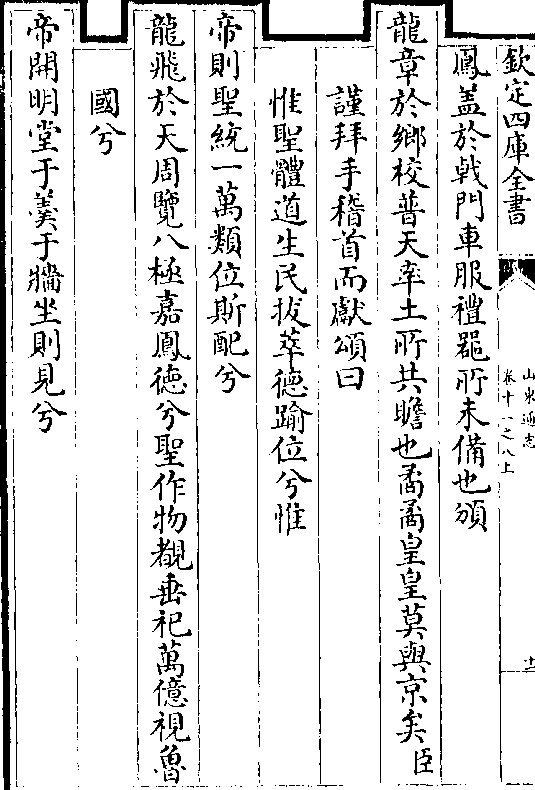 欽定四庫全書
山東通志
卷十一之八上
十二
鳳蓋於㦸門車服禮器所未備也頒
龍章於鄉校普天率土所共瞻也矞矞皇皇莫與京矣臣
謹拜手稽首而獻頌曰
惟聖體道生民拔萃德踰位兮惟
帝則聖統一萬類位斯配兮
龍飛於天周覽八極嘉鳳德兮聖作物覩垂祀萬億視魯
國兮
帝開明堂于羹于牆坐則見兮